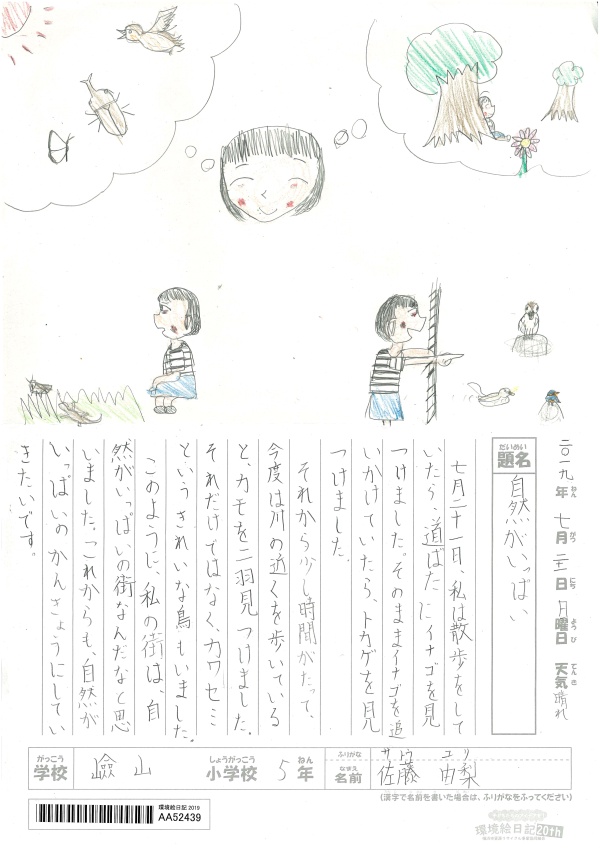 二〇一九年 七月 二十二日 月曜日 天気 晴れ
題名 自然がいっぱい
七月二十一日、私は散歩をして
いたら、道ばたにイナゴを見
つけました。そのままイナゴを追
いかけていたら、トカゲを見
つけました。
それから少し時間がたって、
今度は川の近くを歩いている
と、カモを二羽見つけました。
それだけではなく、カワセミ
というきれいな鳥もいました。
このように、私の街は、自
然がいっぱいの街なんだなぁと思
いました。これからも、自然が
いっぱいのかんきょうにしてい
きたいです。
学校 山 小学校 5年
ふりがな サトウ ユリ
名前 佐藤 由梨
(漢字で名前を書いた場合は、ふりがなをふってください)
環境絵日記 2019
AA52439
環境絵日記 20th